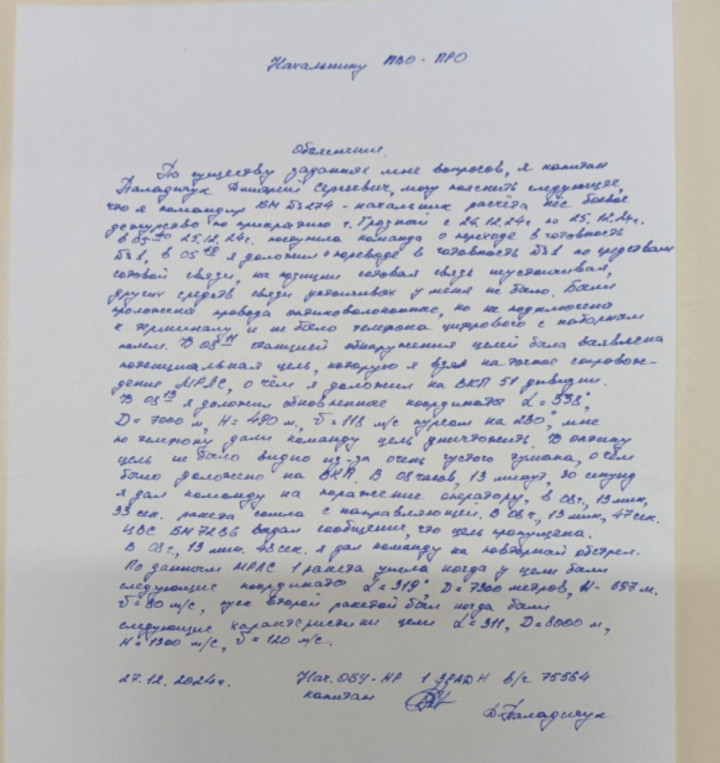 Начальнику ПВО - ПРО
Объяснение.
По существу заданных мне вопросов, я капитан
Паладичук Дмитрий Сергеевич, могу пояснить следующее,
что я командир БМ № 274 - начальник расчёта нёс боевое
дежурство по прикрытию г. Грозный с 24.12.24г. по 25.12.24г.
в 25.12.24г. поступила команда о переходе в готовность
№1, в 05 я доложил о переводе в готовность №1 по средствам
сотовой связи, на позиции сотовая связь неустойчивая,
других средств связи устойчивых у меня не было. Были
проложена провода оптиковолоконные, но не подключена
к терминалу и не было телефона цифрового с наборным
полем. В 08 11 станцией обнаружения целей была выявлена
потенциальная цель, которую я взял на точное сопровож-
дение МРЛС, о чём я доложил на ВКП 51 дивизии.
В 08 13 я доложил обновленные координаты L = 338°,
D = 7000 м, H = 490 м., V = 118 м/с курсом на 230°, мне
по телефону дали команду цель уничтожить. В оптику
цель не было видно из-за очень густого тумана, о чём
было доложено на ВКП. В 08 часов, 13 минут, 30 секунд
я дал команду на поражение оператору, в 08ч., 13 мин,
33 сек. ракета сошла с направляющей. В 08ч., 13 мин, 47 сек.
ЦВС БМ 72В6 выдал сообщение, что цель пропущена.
В 08ч, 13 мин. 48 сек. я дал команду на повторный обстрел.
По данным МРЛС 1 ракета ушла когда у цели были
следующие координаты L = 319°, D = 7300 метров, H - 697 м.
V = 80 м/с, пуск второй ракетой был когда были
следующие характеристики цели L = 311, D = 8000 м,
H = 1300 м/с, V = 120 м/с.
27.12.2024г. Нач. ОБУ - НР 1 ЗРАДН в/ч 75564
капитан
Д. Паладичук